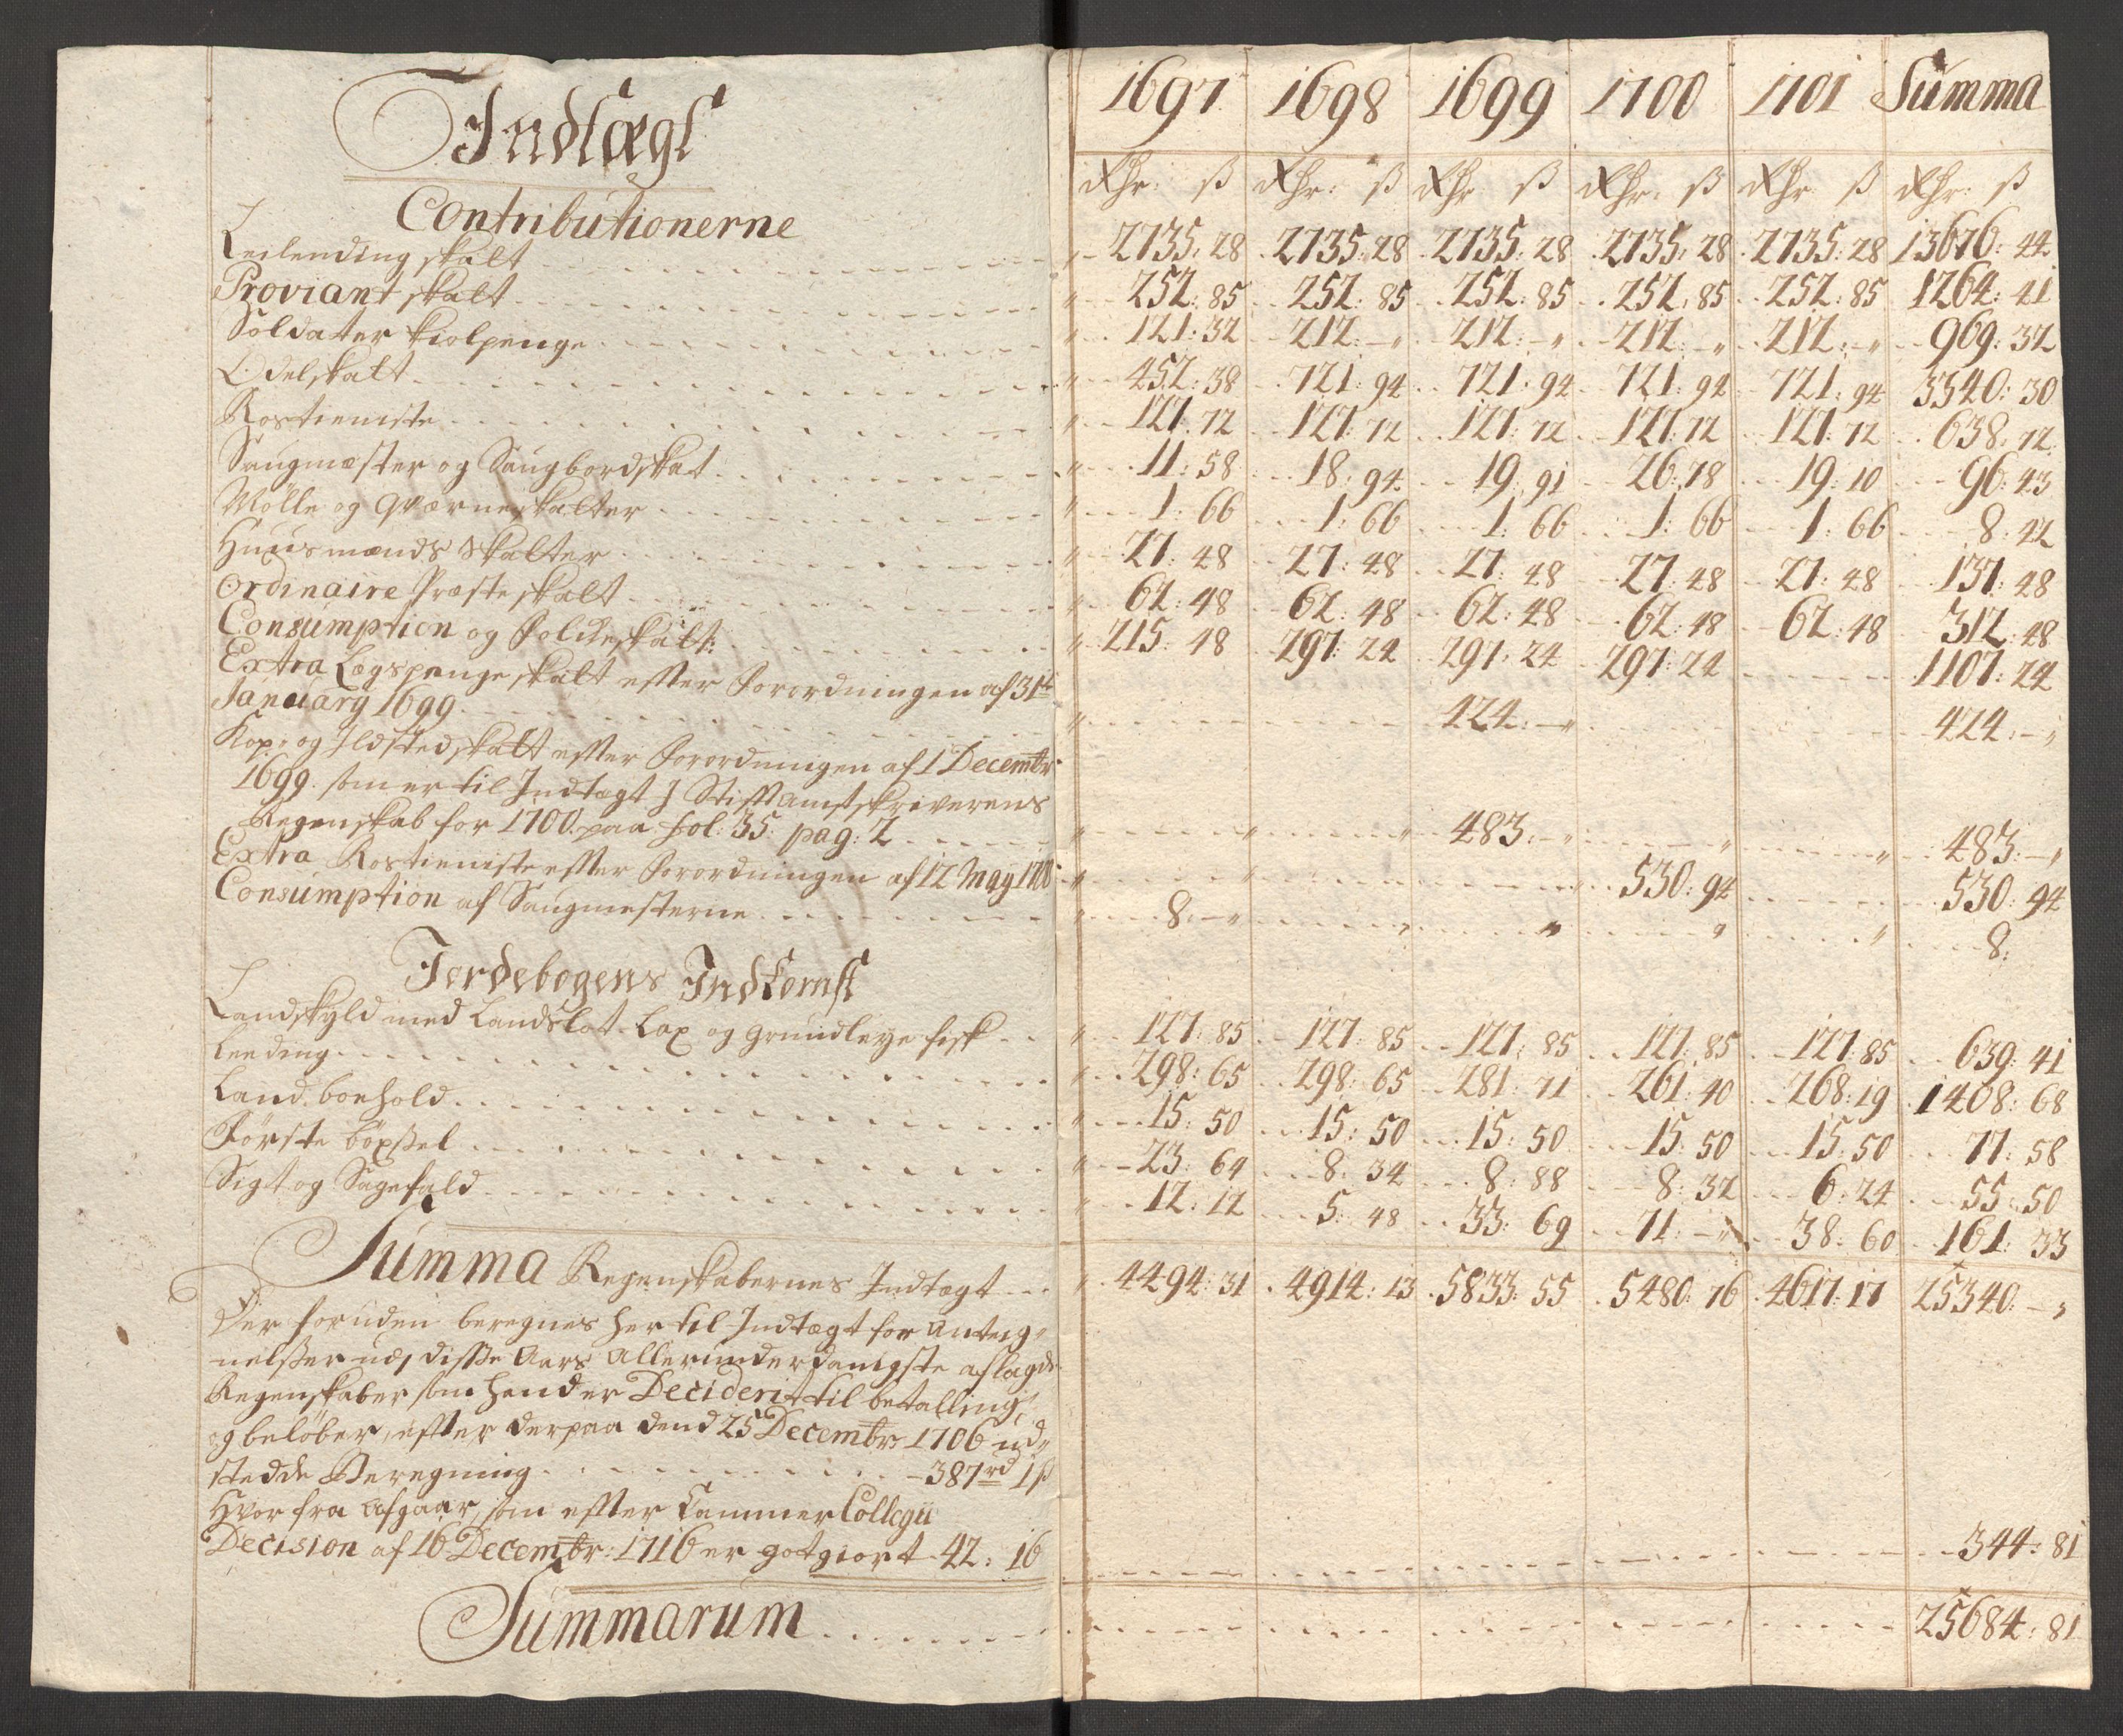 Indtægt
1697 1698 1699 1700 1701 Summa
Rdr: ß Rdr: ß Rdr ß Rdr: ß Rdr ß Rdr: ß
Contributionerne
Leilending skatt 2735:28 2735:28 2735:28 2735:28 2735:28 13676:44
Proviant skatt 252:85 252:85 252:85 252:85 252:85 1264:41
Soldater kiolpenge 121:32 212:-„ 212:-„ 212:-„ 212:-„ 969:32
Odelskatt 452:38 721:94 721:94 721:94 721:94 3340:30
Rostieniste 127:72 127:72 127:72 127:72 127:72 638:72
Saugmæster og Saugbordskat 11:58 18:94 19:91 26:78 19:10 96:43
Mølle og qværneskatter 1:66 1:66 1:66 1:66 1:66 8:42
Huusmænds Skatter 27:48 27:48 27:48 27:48 27:48 137:48
Ordinaire Præsteskatt 62:48 62:48 62:48 62:48 62:48 312:48
Consumption og Folckeskatt: 215:48 297:24 297:24 297:24 1107:24
Extra Lægspenge skatt efter Forordningen af 31te
January 1699 424:-„ 424:-„
Kop: og Ildstedskatt efter Forordningen af 1 Decembr
1699. som er til Indtægt I Stift Amtskriverens
Regenskab for 1700. paa fol: 35. pag: 2 483:-„ 483:-„
Extra Rostieniste efter Forordningen af 12 May 1700 530:94 530:94
Consumption af Saugmesterne 8:-„ 8:
Jordebogens Indkomst
Landskyld med Landslot-Lax og grundleye fisk 127:85 127:85 127:85 127:85 127:85 639:41
Leeding 298:65 298:65 281:71 261:40 268:19 1408:68
Land boehold 15:50 15:50 15:50 15:50 15:50 77:58
Første böxßel 23:64 8:34 8:88 8:32 6:24 55:50
Sigt og Sagefald 12:12 5:48 33:69 71:-„ 38:60 161:33
Summa Regenskabernes Indtægt 4494:31 4914:13 5833:55 5480:76 4617:17 25340:-„
Der foruden beregnes her til Indtægt for Anteig-
nelßer ved disße Aars Allerunderdanigste aflagde
Regenskaber som hender Decideret til betalling,
og beløber, efter derpaa dend 25 Decembr: 1706 ud-
stedde Beregning 387rd 1ß
Hvor fra Afgaar, som efter Cammer Collegii
Decision af 16 Decembr: 1716 er gotgiort 42:16 344:81
Summarum 25684:81